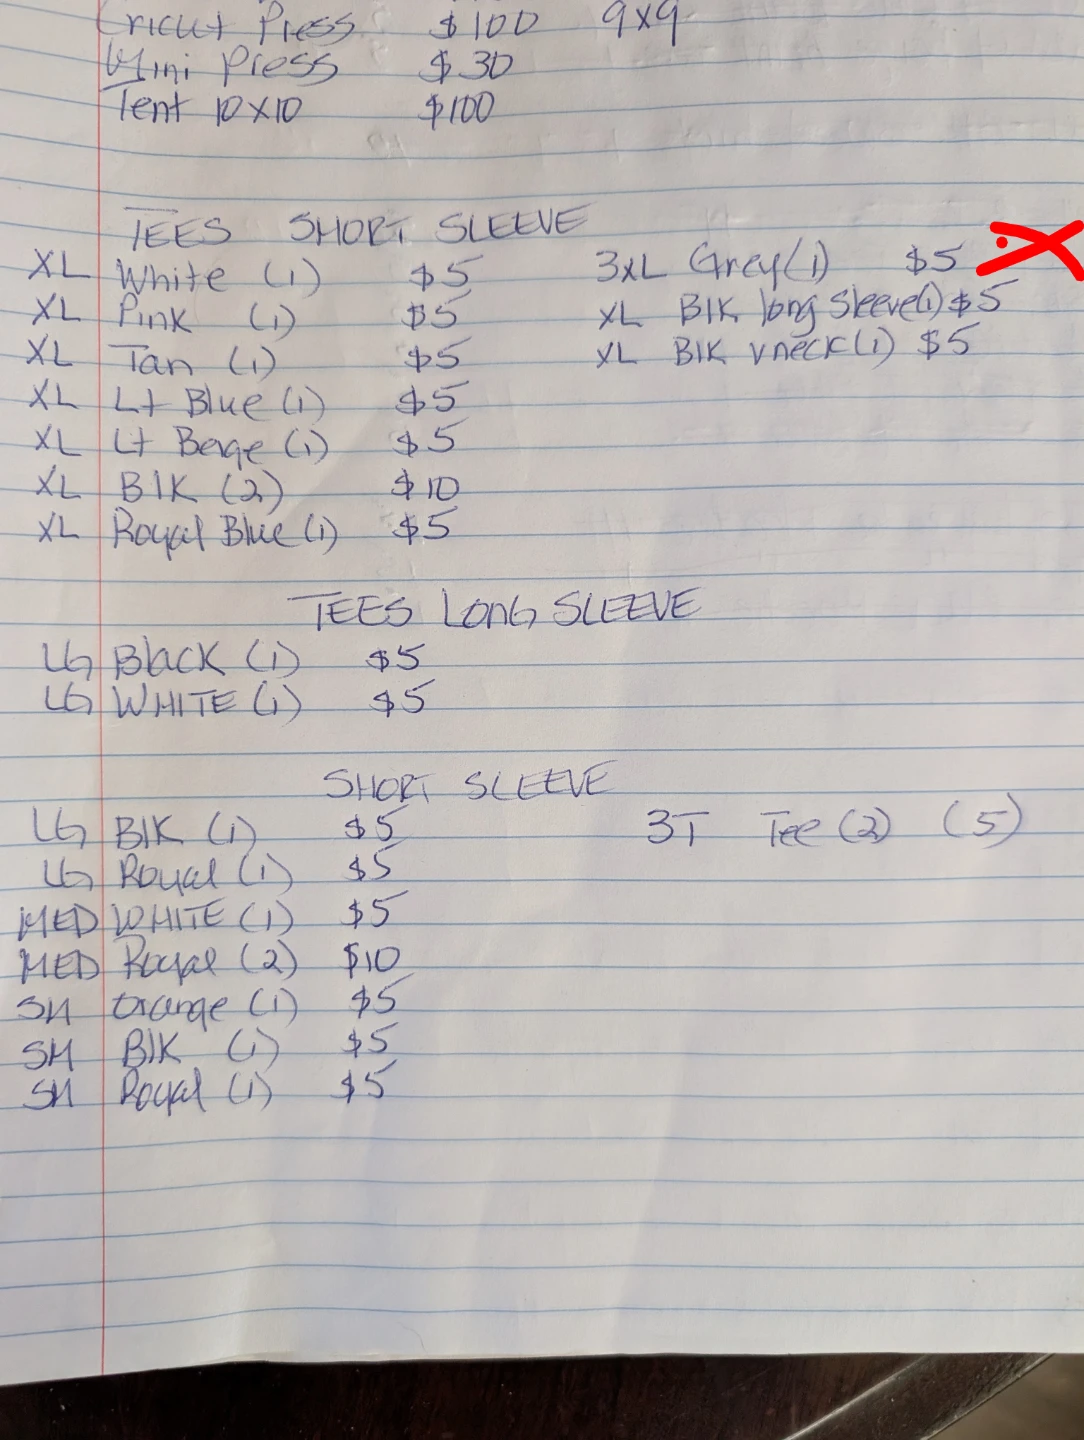 Cricut Press $100 9x9
Mini Press $30
Tent 10x10 $100
TEES SHORT SLEEVE
XL White (1) $5
XL Pink (1) $5
XL Tan (1) $5
XL Lt Blue (1) $5
XL Lt Beige (1) $5
XL Blk (2) $10
XL Royal Blue (1) $5
3XL Grey (1) $5
XL Blk long sleeve (1) $5
XL Blk vneck (1) $5
TEES LONG SLEEVE
LG Black (1) $5
LG WHITE (1) $5
SHORT SLEEVE
LG Blk (1) $5
LG Royal (1) $5
MED WHITE (1) $5
MED Royal (2) $10
SM Orange (1) $5
SM Blk (1) $5
SM Royal (1) $5
3T Tee (2) (5)